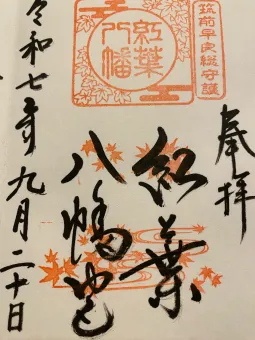 筑前早良総守護
奉拝
紅葉
八幡
紅葉
八幡宮
令和七年九月二十日